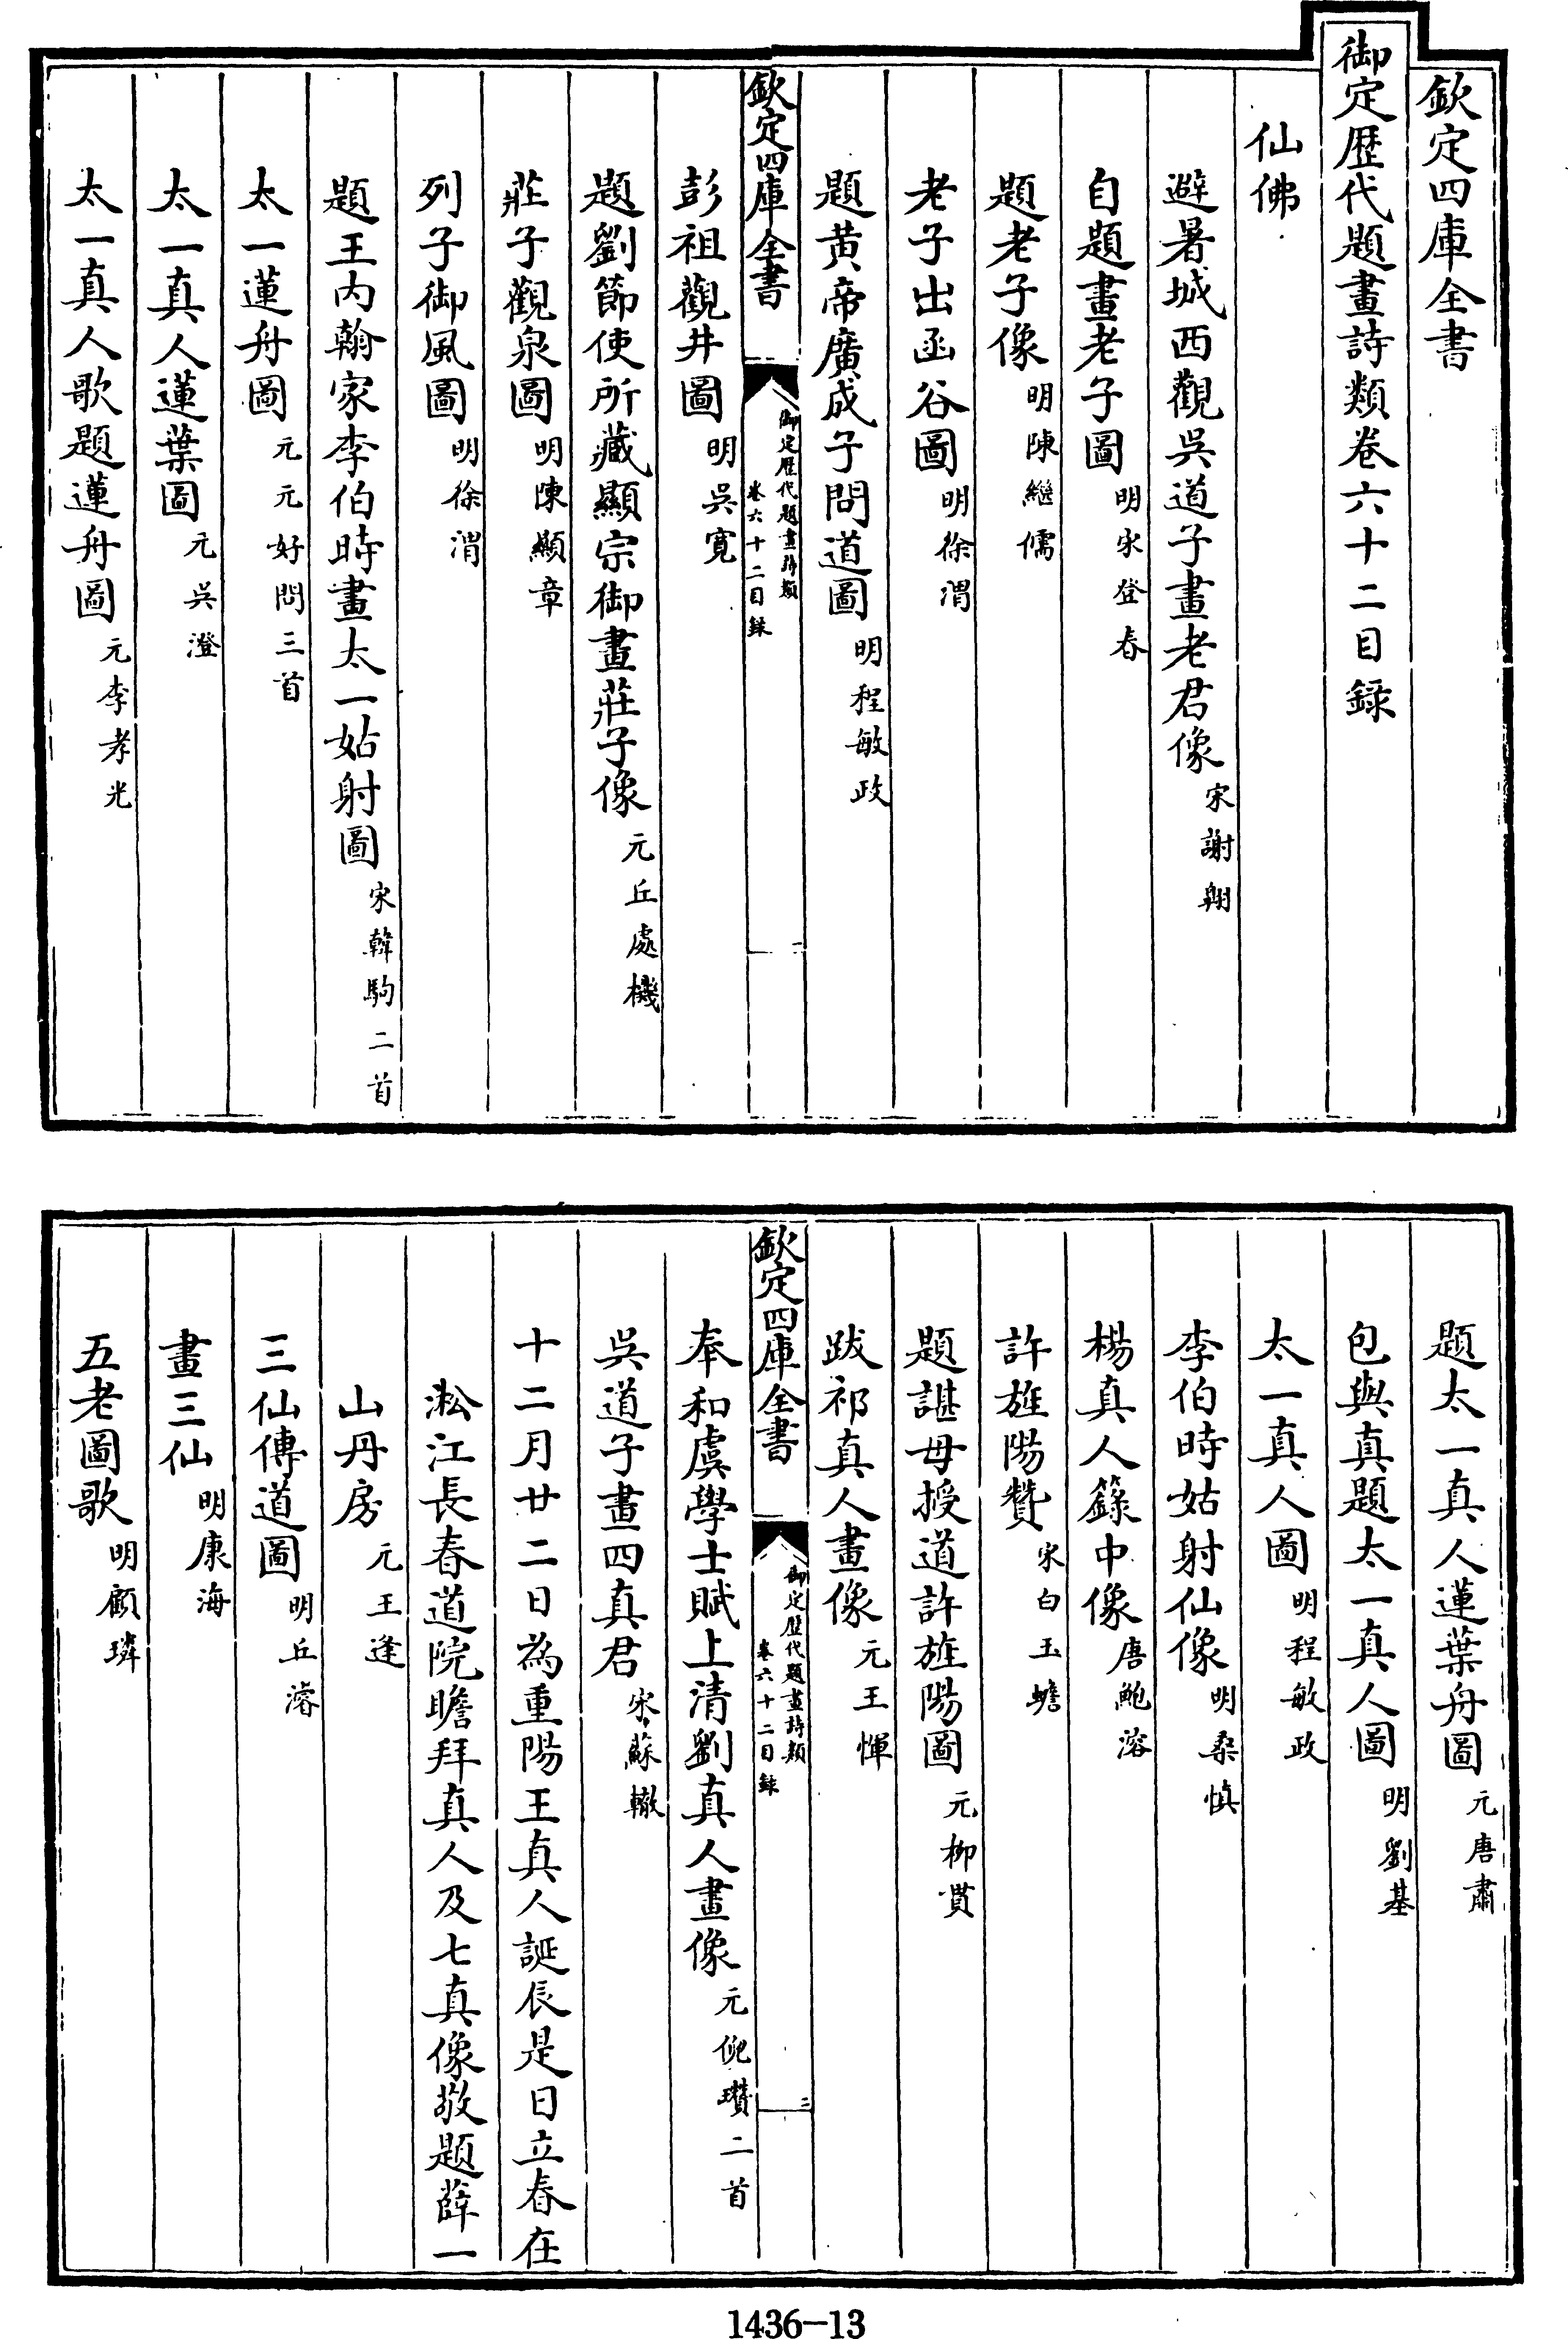 欽定四庫全書
御定歴代題畫詩類卷六十二目録
仙佛
避暑城西觀吳道子畫老君像宋謝翺
自題畫老子圖明宋登春
題老子像明陳繼儒
老子出函谷圖明徐渭
題黄帝廣成子問道圖明程敏政
欽定四庫全書
御定歴代題畫詩類
卷六十二目録
一
彭祖觀井圖明吳寛
題劉節使所藏顯宗御畫莊子像元丘處機
莊子觀泉圖明陳顯章
列子御風圖明徐渭
題王内翰家李伯時畫太一姑射圖宋韓駒二首
太一蓮舟圖元元好問三首
太一真人蓮葉圖元吳澄
太一真人歌題蓮舟圖元李孝光
題太一真人蓮葉舟圖元唐肅
包與真題太一真人圖明劉基
太一真人圖明程敏政
李伯時姑射仙像明桑慎
楊真人籙中像唐鮑溶
許旌陽贊宋白玉蟾
題諶母授道許旌陽圖元柳貫
跋祁真人畫像元王惲
欽定四庫全書
御定歴代題畫詩類
卷六十二目録
二
奉和虞學士賦上清劉真人畫像元倪瓚二首
吳道子畫四真君宋蘇轍
十二月廿二日為重陽王真人誕辰是日立春在
淞江長春道院瞻拜真人及七真像敬題薛一
山丹房元王逢
三仙傳道圖明丘濬
畫三仙明康海
五老圖歌明顧璘
1436-13